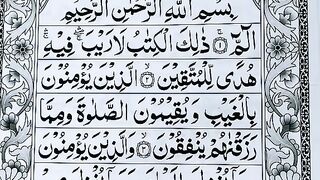 بِسْمِ اللّٰهِ الرَّحْمٰنِ الرَّحِيْمِ
الٓمّٓ ۚ﴿۱﴾ ذٰلِكَ الْكِتٰبُ لَا رَيْبَ ۛۖ فِيْهِ ۛۚ
هُدًى لِّلْمُتَّقِيْنَ ۙ﴿۲﴾ الَّذِيْنَ يُؤْمِنُوْنَ
بِالْغَيْبِ وَيُقِيْمُوْنَ الصَّلٰوةَ وَمِمَّا
رَزَقْنٰهُمْ يُنْفِقُوْنَ ۙ﴿۳﴾ وَالَّذِيْنَ يُؤْمِنُوْنَ